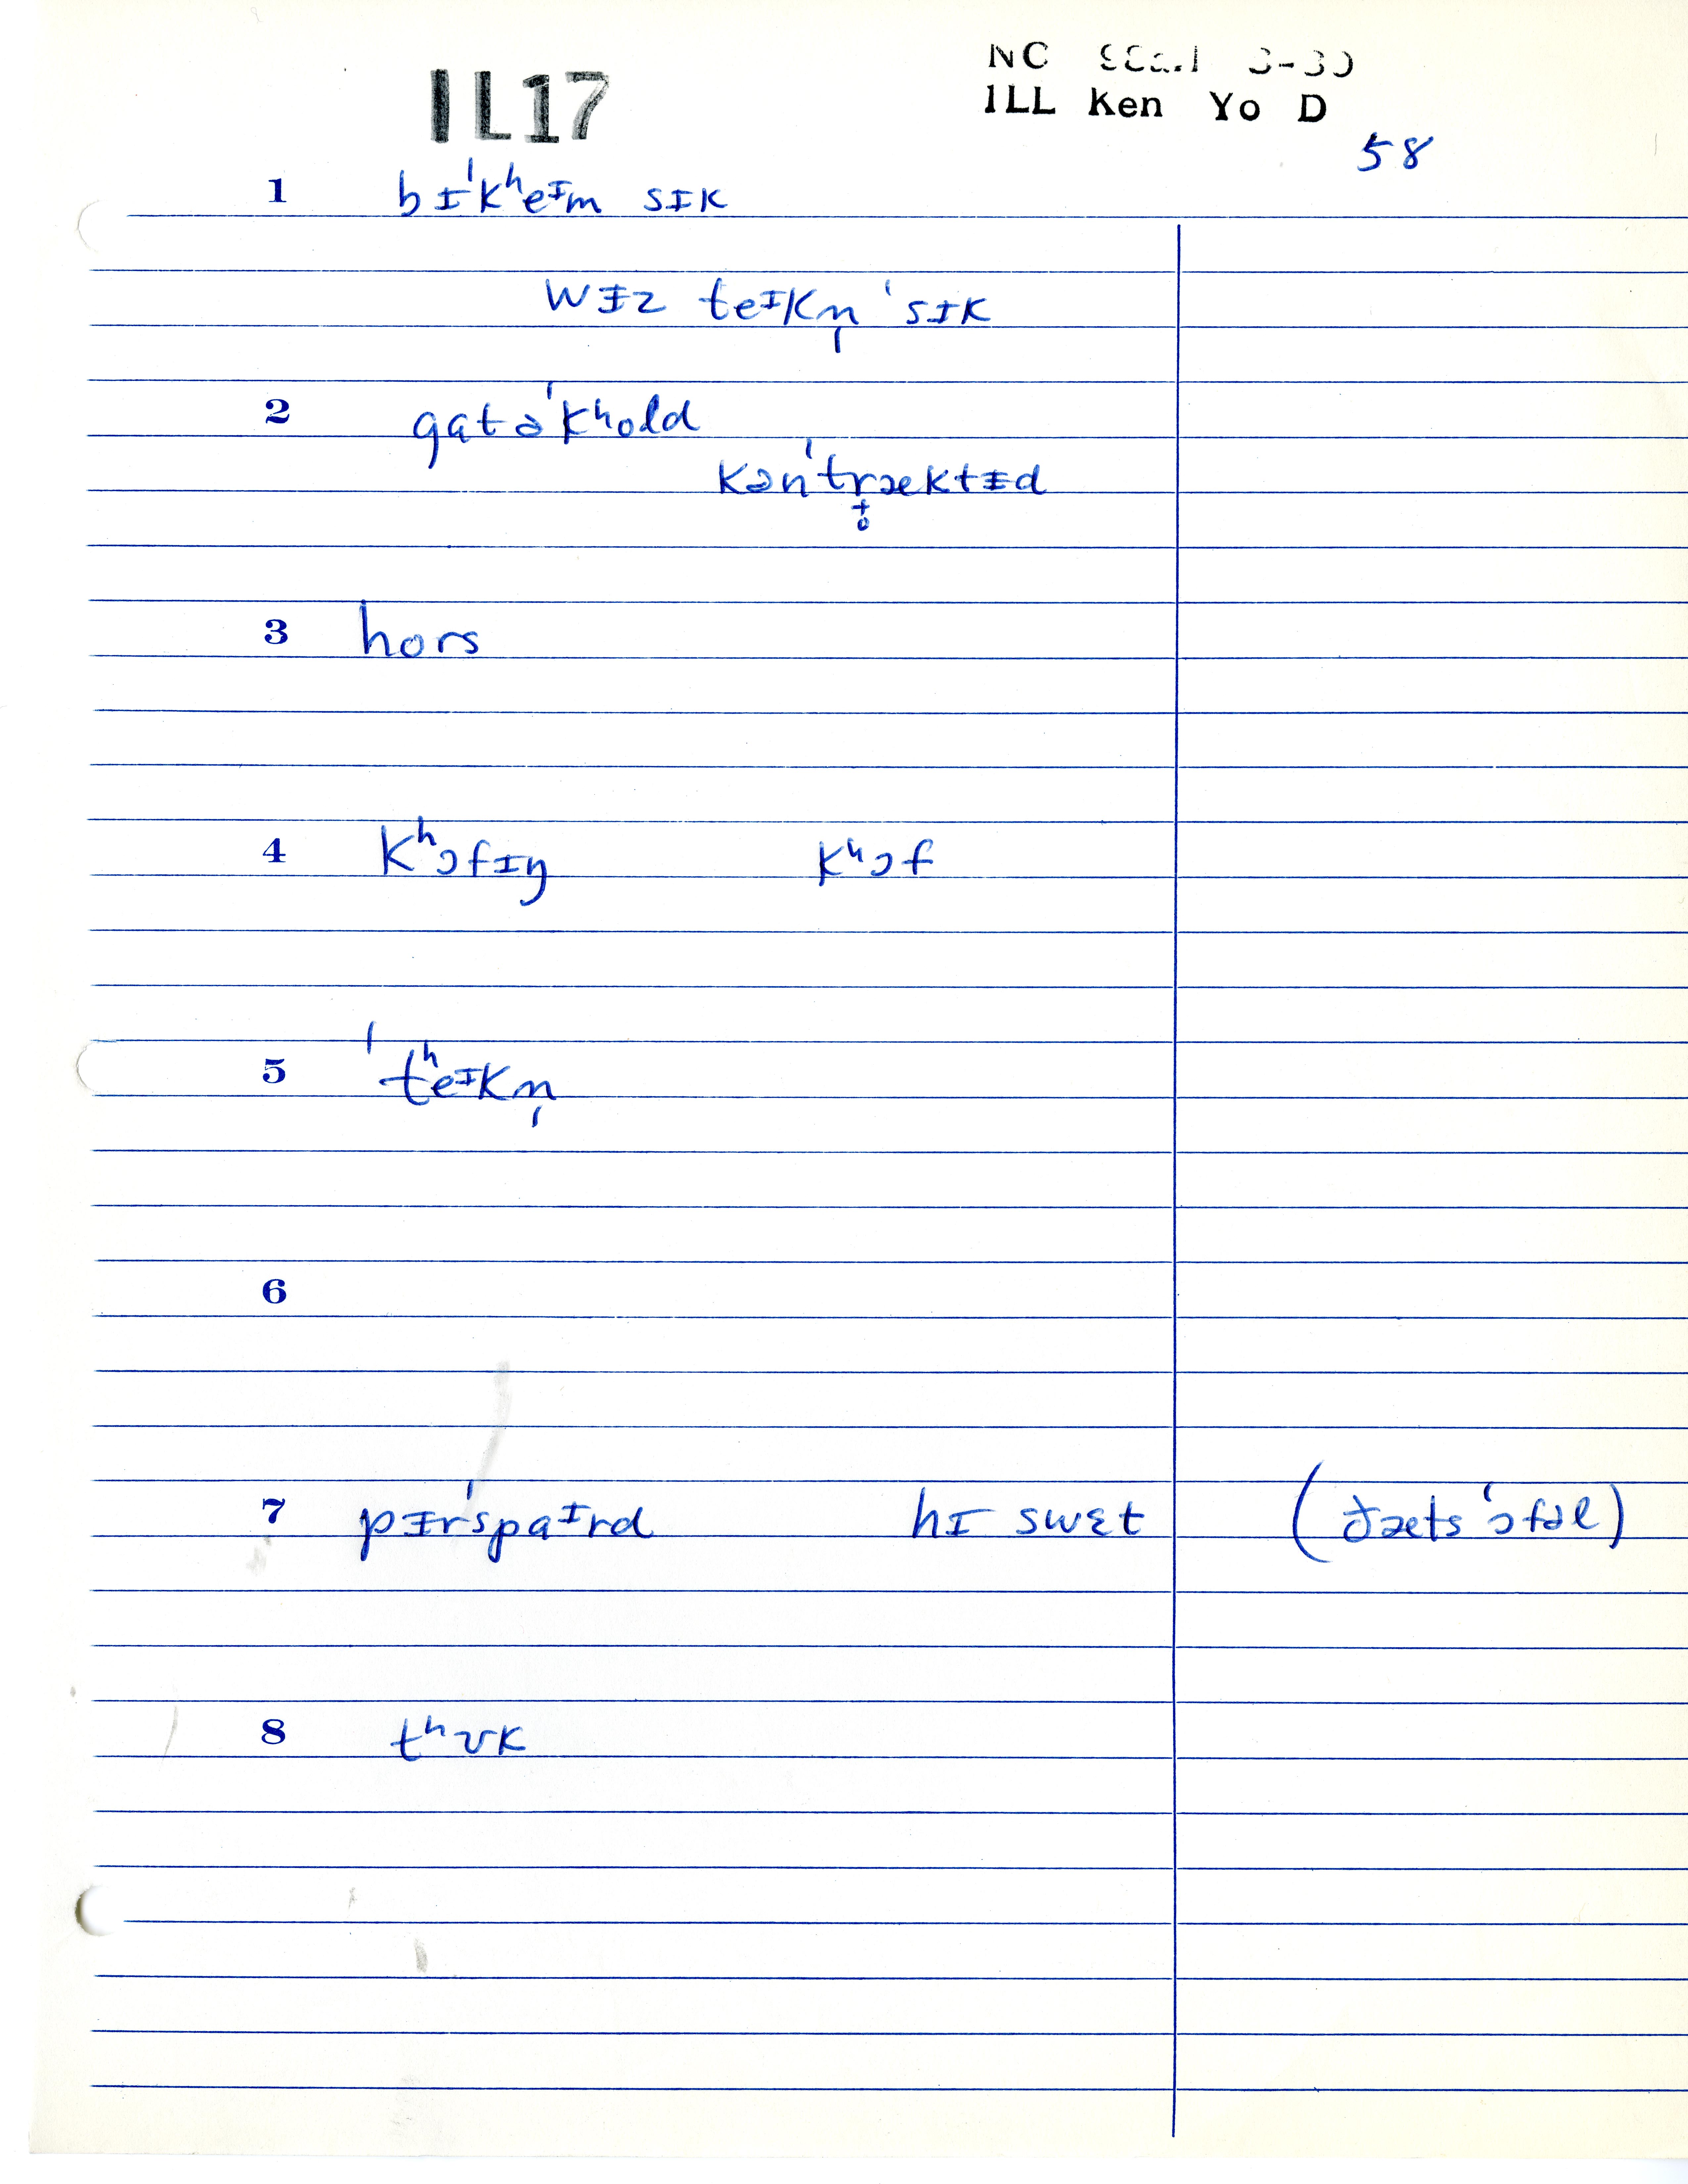 IL17
NC 3-30
ILL Ken Yo D
58
1 bɪˈkʰeᴵm sɪk
wɪz teᴵkn̩ ˈsɪk
2 gatəˈkʰold
kənˈtr̥æktɪd
3 hors
4 kʰɔfɪŋ kʰɔf
5 ˈtʰeᴵkn̩
6
7 pɪrˈspaᴵrd hɪ swɛt (ðæts ˈɔfəl)
8 tʰʊk